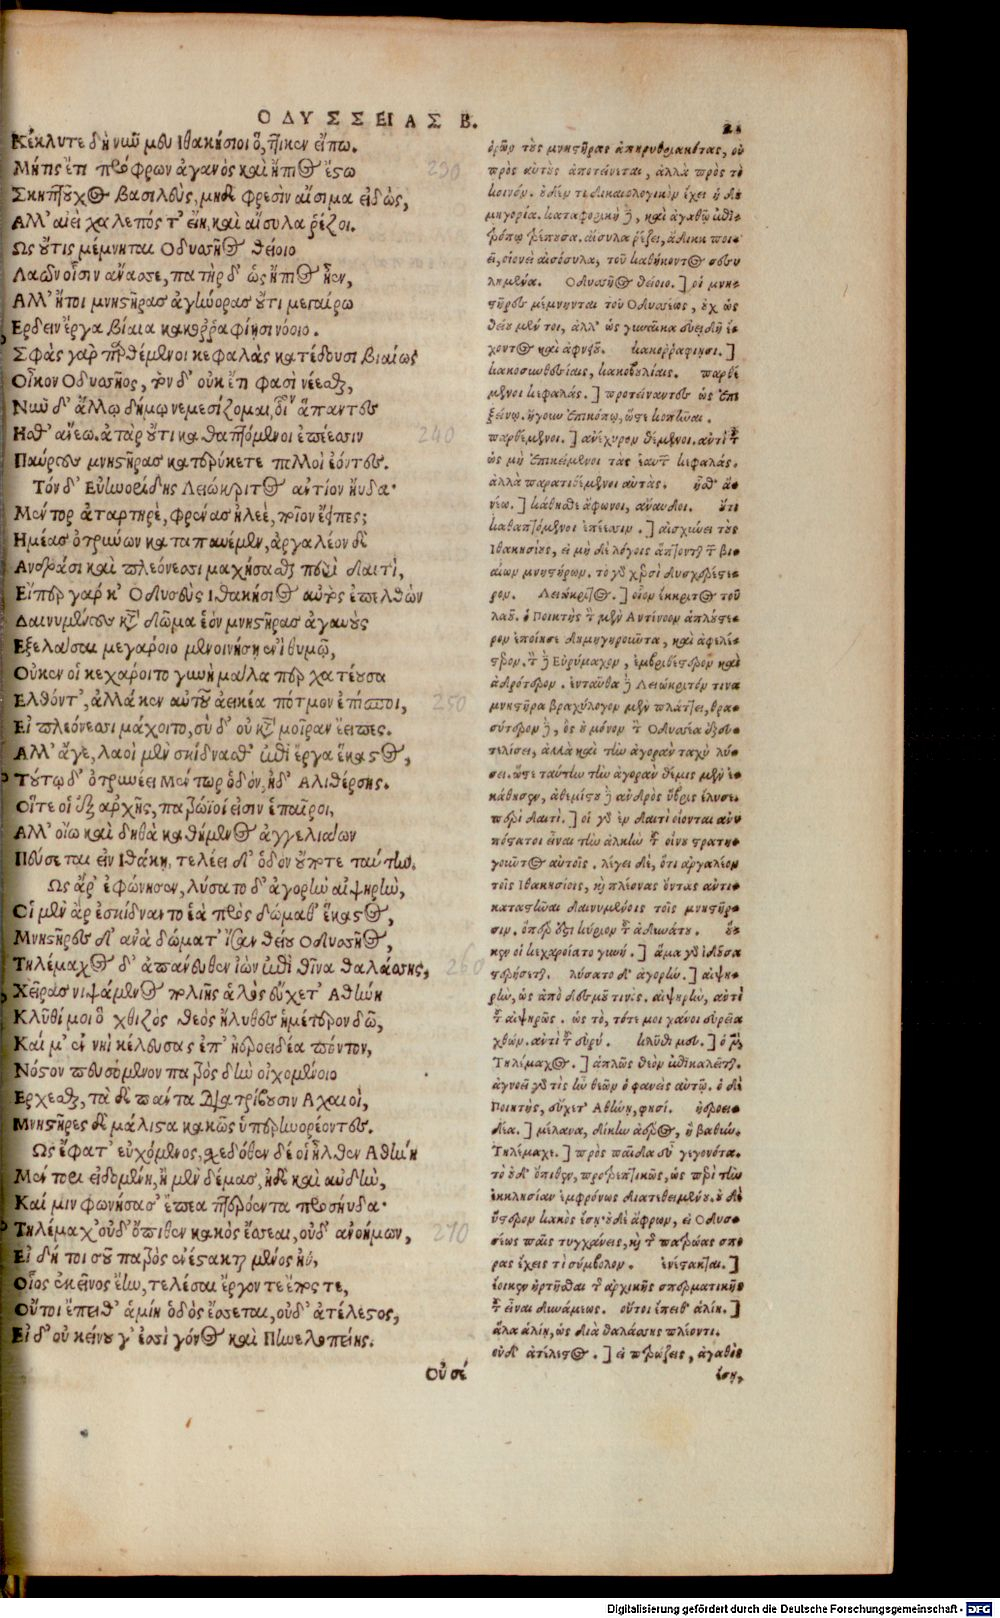 ΟΔΥΣΣΕΙΑΣ Β.
21
Κέκλυτε δὴ νῦν μευ Ιθακήσιοι ὅ, ττικεν εἴπω.
Μήτις ἔτι πρόφρων ἀγανὸς καὶ ἤπιος ἔστω
230
Σκηπτοῦχος βασιλεὺς, μηδὲ φρεσὶν αἴσιμα εἰδὼς,
Αλλ' αἰεὶ χαλεπός τ' εἴη, καὶ αἴσυλα ῥέζοι.
Ως οὔτις μέμνηται Οδυσσῆος θείοιο
Λαῶν οἷσιν ἄνασσε, πατὴρ δ' ὣς ἤπιος ἦεν,
Αλλ' ἤτοι μνηστῆρας ἀγήνορας οὔτι μεγαίρω
Ερδειν ἔργα βίαια κακορραφίῃσι νόοιο.
Σφὰς γὰρ παρθέμενοι κεφαλὰς κατέδουσι βιαίως
Οἶκον Οδυσσῆος, τὸν δ' οὐκ ἔτι φασὶ νέεσθαι,
Νῦν δ' ἄλλῳ δήμῳ νεμεσίζομαι, οἷον ἅπαντες
Ησθ' ἄνεω. ἀτὰρ οὔτι καθαπτόμενοι ἐπέεσσιν
240
Παύρους μνηστῆρας κατερύκετε πολλοὶ ἐόντες.
Τόνδ' Εὐηνορίδης Λειώκριτος ἀντίον ηὔδα·
Μέντορ ἀταρτηρὲ, φρένας ἠλεὲ, ποῖον ἔειπες;
Ημέας ὀτρύνων καταπαυέμεν, ἀργαλέον δὲ
Ανδράσι καὶ πλεόνεσσι μαχήσασθαι περὶ δαιτὶ,
Εἴπερ γάρ κ' Οδυσεὺς Ιθακήσιος αὐτὸς ἐπελθὼν
Δαινυμένους κατὰ δῶμα ἑὸν μνηστῆρας ἀγαυοὺς
Εξελάσαι μεγάροιο μενοινήσῃ ἐνὶ θυμῷ,
Οὔκεν οἱ κεχάροιτο γυνὴ μάλα περ χατέουσα
Ελθόντ', ἀλλά κεν αὐτοῦ ἀεικέα πότμον ἐπίσποι,
250
Εἰ πλεόνεσσι μάχοιτο, σὺ δ' οὐ κατὰ μοῖραν ἔειπες.
Αλλ' ἄγε, λαοὶ μὲν σκίδνασθ' ἐπὶ ἔργα ἕκαστος,
Τούτῳ δ' ὀτρυνέει Μέντωρ ὁδὸν, ἠδ' Αλιθέρσης.
Οἵτε οἱ ἐξ ἀρχῆς, πατρώϊοί εἰσιν ἑταῖροι,
Αλλ' οἴω καὶ δηθὰ καθήμενος ἀγγελιάων
Πεύσεται εἰν Ιθάκῃ, τελέει δ' ὁδὸν οὔποτε ταύτην.
Ως ἄρ' ἐφώνησεν, λύσατο δ' ἀγορὴν αἰψηρὴν,
Οἱ μὲν ἄρ ἐσκίδναντο ἑὰ πρὸς δώμαθ' ἕκαστος,
Μνηστῆρες δ' ἀνὰ δώματ' ἴσαν θείου Οδυσσῆος,
Τηλέμαχος δ' ἀπάνευθεν ἰὼν ἐπὶ θῖνα θαλάσσης,
260
Χεῖρας νιψάμενος πολιῆς ἁλὸς εὔχετ' Αθήνῃ
Κλῦθί μοι ὃ χθιζὸς θεὸς ἤλυθες ἡμέτερον δῶ,
Καί μ' ἐν νηὶ κέλευσας ἐπ' ἠεροειδέα πόντον,
Νόστον πευσόμενον πατρὸς δὴν οἰχομένοιο
Ερχεσθαι, τὰ δὲ πάντα διατρίβουσιν Αχαιοὶ,
Μνηστῆρες δὲ μάλιστα κακῶς ὑπερηνορέοντες.
Ως ἔφατ' εὐχόμενος, σχεδόθεν δέ οἱ ἦλθεν Αθήνη
Μέντορι εἰδομένη, ἠμὲν δέμας, ἠδὲ καὶ αὐδὴν,
Καί μιν φωνήσασ' ἔπεα πτερόεντα προσηύδα·
Τηλέμαχ' οὐδ' ὄπιθεν κακὸς ἔσσεαι, οὐδ' ἀνοήμων,
270
Εἰ δή τοι σοῦ πατρὸς ἐνέστακται μένος ἠῢ,
Οἷος ἐκεῖνος ἔην, τελέσαι ἔργον τε ἔπος τε,
Οὔτοι ἔπειθ' ἁλίη ὁδὸς ἔσσεται, οὐδ' ἀτέλεστος,
Εἰ δ' οὐ κείνου γ' ἐσσὶ γόνος καὶ Πηνελοπείης.
Οὐ σέ
ὁρῶν τοὺς μνηστῆρας ἀπηρυθριακότας, οὐ
πρὸς αὐτοὺς ἀποτείνεται, ἀλλὰ πρὸς τὸ
κοινόν. οὐδὲν τε δικαιολογικὸν ἔχει ἡ δη
μηγορία. καταφορικὴ δὲ, καὶ ἀγαθῷ ἐπι
τρόπῳ ῥέπουσα. αἴσυλα ῥέζει, ἄδικα ποι
εῖ, οἱονεὶ αἰσόσυλα, τοῦ καθήκοντος
λημένα. Οδυσσῆος θείοιο.] οἱ μνη
στῆρες μέμνηνται τοῦ Οδυσσέως, οὐχ ὡς
θείου μέν τοι, ἀλλ' ὡς γυναῖκα εὐειδῆ ἔ
χοντος καὶ ἀφνειοῦ. κακορραφίῃσι.]
κακοσυνθεσίαις, κακοβουλίαις. παρθέ
μενοι κεφαλάς.] προτείναντες ὡς ἐπι
ξείνῳ. ἤγουν ἐπικόπῳ, ὥστε κοπῆναι.
παρθέμενοι.] ἀνέχυρον θέμενοι. ἀντὶ τοῦ
ὡς μὴ ἐπικείμενοι τὰς ἑαυτῶν κεφαλάς.
ἀλλὰ παρατιθέμενοι αὐτάς. ἧσθ' ἄ
νεω.] κάθησθε ἄφωνοι, ἄναυδοι. οὔτι
καθαπτόμενοι ἐπέεσσιν.] αἰσχύνει τοὺς
Ιθακησίους, εἰ μὴ δὲ λόγοις ἅπτονται τῶν βι
αίων μνηστήρων. τὸ γὰρ χερσὶ δυσχερέστε
ρον. Λειώκριτος.] οἷον ἔκκριτος τοῦ
λαοῦ. ὁ Ποιητὴς τὸν μὲν Αντίνοον ἁπλούστε
ρον ἐποίησε δημηγοροῦντα, καὶ ἀφελέσ
τερον. τὸν δὲ Εὐρύμαχον, ἐμβριθέστερον καὶ
ἁδρότερον. ἐνταῦθα δὲ Λειώκριτόν τινα
μνηστῆρα βραχύλογον μὲν πλάττει, θρα
σύτερον δὲ, ὃς οὐ μόνον τὸν Οδυσσέα ἐξευ
τελίσει, ἀλλὰ καὶ τὴν ἀγορὰν ταχὺ λύ
σει. ὥστε ταύτην τὴν ἀγορὰν θέμις μὲν ἐ
κάθισεν, ἀθεμίστου δὲ ἀνδρὸς ὕβρις ἔλυσε.
περὶ δαιτί.] οἱ γὰρ ἐν δαιτὶ οἴονται ἀνυ
πόστατοι εἶναι τὴν ἀλκὴν τοῦ οἴνου στρατη
γοῦντος αὐτοῖς. λέγει δὲ, ὅτι ἀργαλέον
τοῖς Ιθακησίοις, καὶ πλέονας ὄντας ἀντι
καταστῆναι δαινυμένοις τοῖς μνηστῆρ
σιν. ὅπερ ἐστὶ κύριον τοῦ ἀδυνάτου. οὔ
κεν οἱ κεχαροίατο γυνή.] ἅμα γὰρ ἰδοῦσα
στερήσεται. λύσατο δ' ἀγορήν.] αἰψη
ρὴν, ὡς ἀπὸ δεσμοῦ τινός. αἰψηρὴν, ἀντὶ
τοῦ αἰψηρῶς. ὡς τὸ, τότε μοι χάνοι εὐρεῖα
χθών. ἀντὶ τοῦ εὐρύ. κλῦθί μευ.] ὁ μὲν
Τηλέμαχος.] ἁπλῶς θεὸν ἐπικαλεῖται.
ἀγνοεῖ γὰρ τίς ἦν θεῶν ὁ φανεὶς αὐτῷ. ὁ δὲ
Ποιητὴς, εὔχετ' Αθήνῃ, φησί. ἠεροει
δέα.] μέλανα, δίκην ἀέρος, ἢ βαθύν.
Τηλέμαχε.] πρὸς παῖδα εὖ γεγονότα.
τὸ οὐδ' ὄπιθεν, προτρεπτικῶς, ὡς περὶ τὴν
ἐκκλησίαν ἐμφρόνως διατεθειμένου. οὐδὲ
ὕστερον κακὸς ἔσῃ οὐδὲ ἄφρων, εἰ Οδυσ
σέως παῖς τυγχάνεις, καὶ τοῦ πατρῴας σπο
ρᾶς ἔχεις τὶ σύμβολον. ἐνέστακται.]
ἔοικεν ἠρτῆσθαι τῆς ἀρχικῆς σπερματικῆς
τ εἶναι δυνάμεως. οὔτοι ἔπειθ' ἁλίη.]
ἅλα ἁλίη, ὡς διὰ θαλάσσης πλέοντι.
οὐδ' ἀτέλεστος.] εἰ πράξεις, ἀγαθὸς
ἔσῃ,
Digitalisierung gefördert durch die Deutsche Forschungsgemeinschaft - DFG